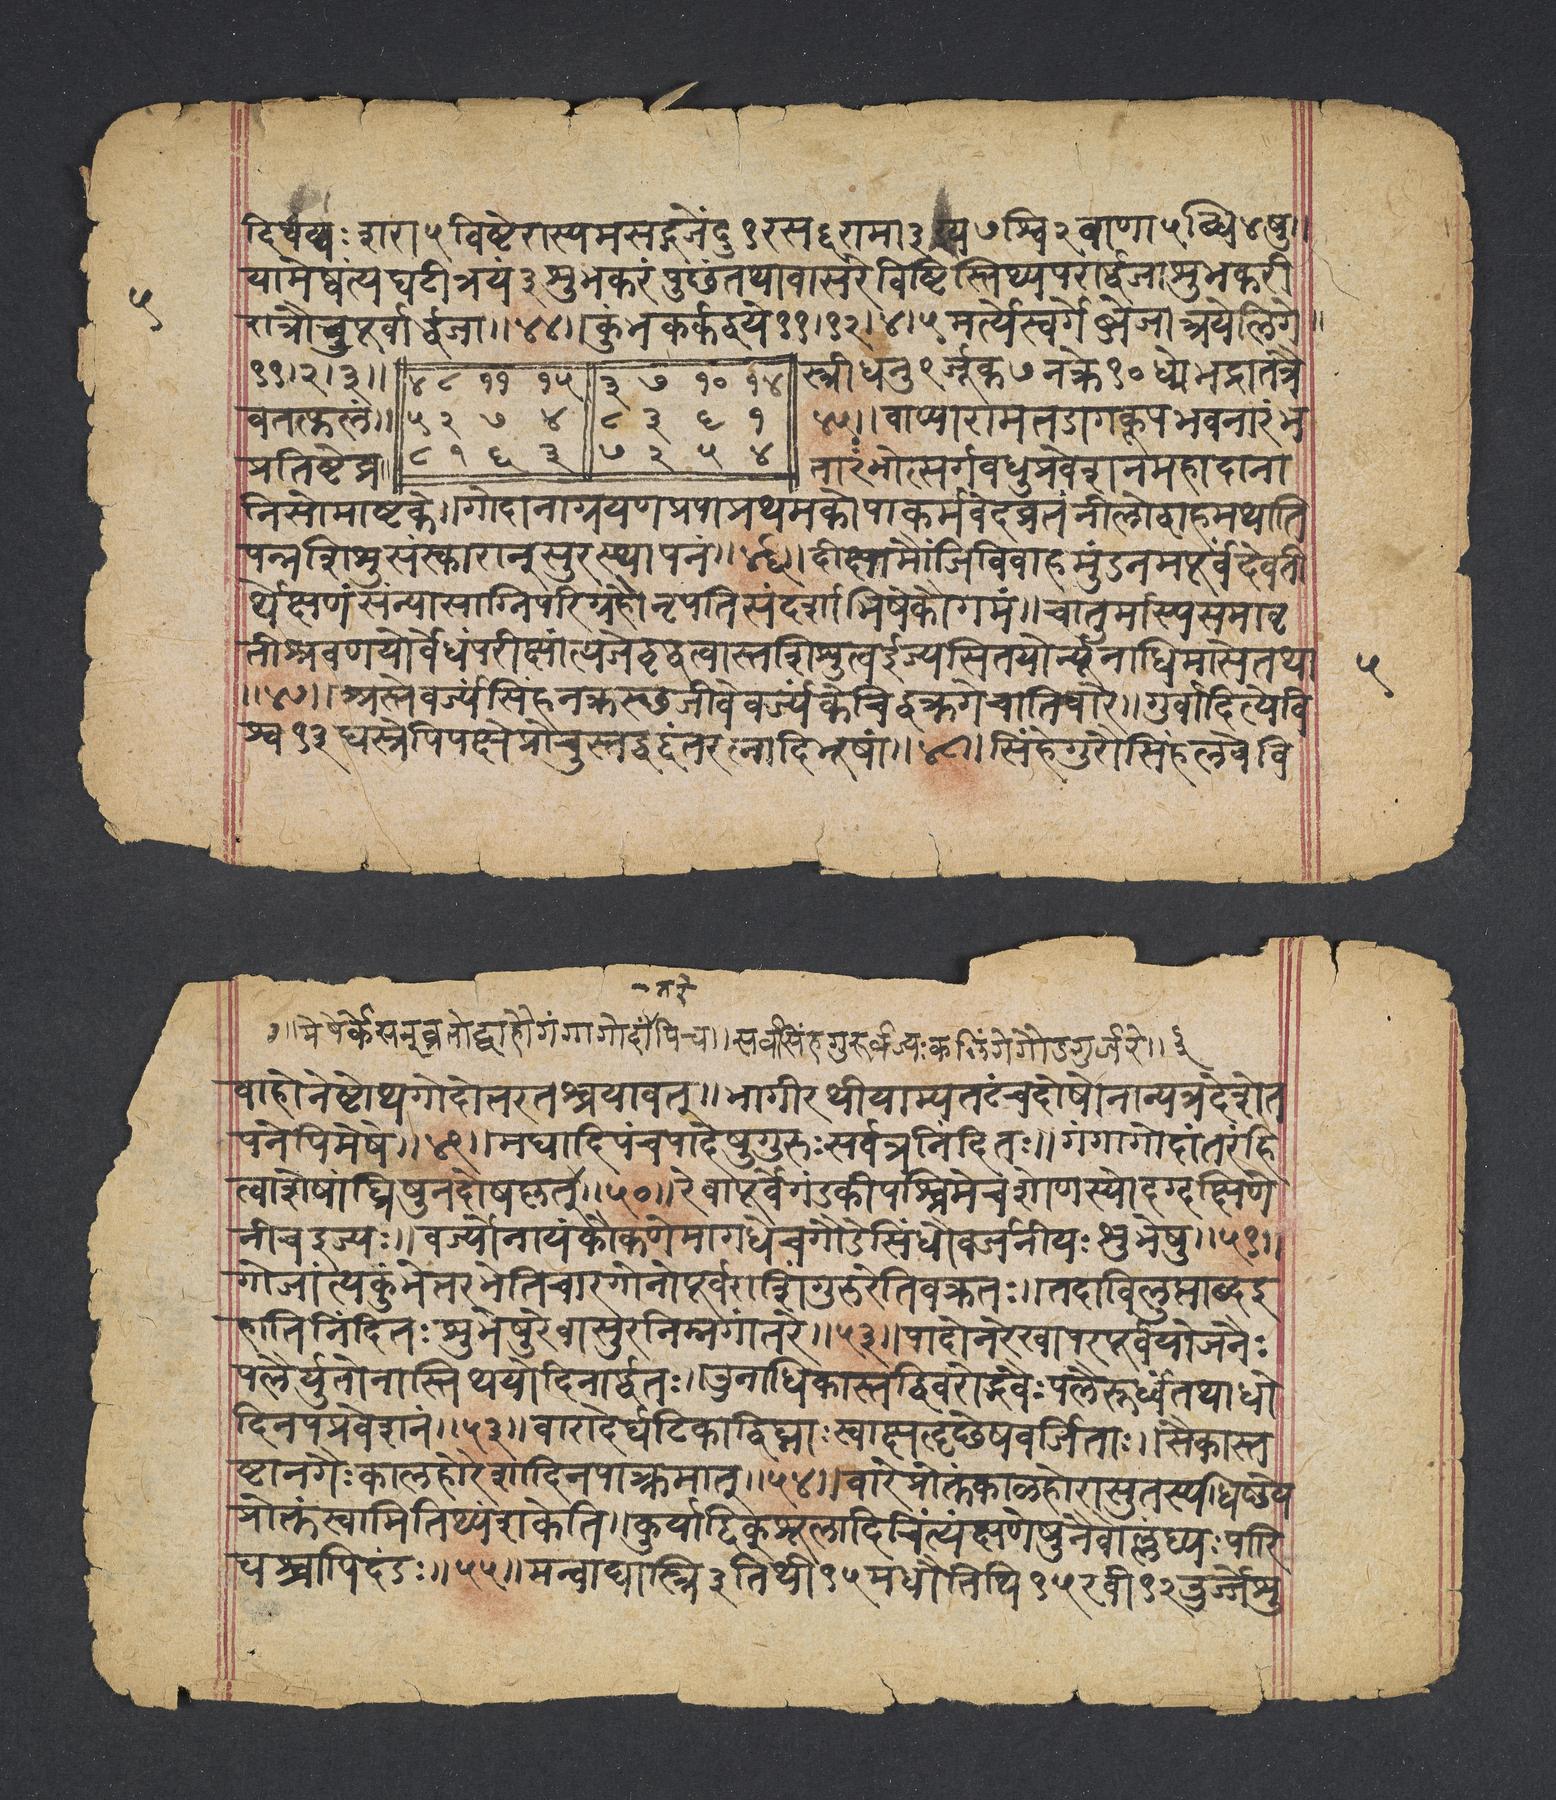 द्विर्पंच्यः शरा५ विष्टेरास्यमसद्गजेंदु१रस६रामा३श्व७श्वि२बाणा५ब्धि४षु॥
यामेष्वंत्यघटीत्रयं३शुभकरंपुछंतथावासरे विष्टिस्तिथ्यपरार्द्धजाशुभकरी
रात्रौचपूर्वार्द्धजा॥४४॥कुंभकर्कद्वये११।१२।४।५मर्त्येस्वर्गेब्जेजात्रयेलिगे॥
११।२।३॥
४ ८ ११ १५ ३ ७ १० १४
स्त्रीधनु९र्जूक७नक्रे१०धोभद्रातत्रै
वतत्फलं॥
५ २ ७ ४ ८ ३ ६ १
४५॥वाप्यारामतडागकूपभवनारंभ
प्रतिष्टेव्र
८ १ ६ ३ ७ २ ५ ४
तारंभोत्सर्गवधुप्रवेशनमहादाना
निसोमाष्टके॥गोदानाग्रयणप्रपाप्रथमकोपाकर्मवेदव्रतंनीलोद्वाहमथाति
पन्नशिशुसंस्कारान्सुरस्थापनं॥४६॥दीक्षामौंजिविवाहमुंडनमपूर्वंदेवती
र्थेक्षणंसंन्यासाग्निपरिग्रहौनृपतिसंदर्शाभिषेकौगमं॥चातुर्मास्यसमावृ
तीश्रवणयोर्वेधंपरीक्षांत्यजेद्वृद्धत्वास्तशिशुत्वईज्यसितयोर्न्यूनाधिमासेतथा
५
॥४७॥अस्तेवर्ज्यंसिंहनक्रस्थजीवेवर्ज्यंकेचिद्वक्रगेचातिचारे॥गुर्वादित्येवि
श्व१३घस्त्रेपिपक्षेप्रोचुस्तद्वद्दंतरत्नादिभूषां॥४८॥सिंहेगुरौसिंहलवेवि
मेषेर्केसन्व्रतोद्वाहौगंगागोदांतरेपिच॥सर्वसिंहगुरुर्वर्ज्यःकलिंगेगौडगुर्जरे॥
वाहोनेष्टोथगोदोत्तरतश्चयावत्॥भागीरथीयाम्यतटंचदोषोनान्यत्रदेशेत
पनेपिमेषे॥४९॥मघादिपंचपादेषुगुरुःसर्वत्रनिंदितः॥गंगागोदांतरंहि
त्वाशेषांघ्रिषुनदोषकृत्॥५०॥रेवापूर्वेगंडकीपश्चिमेचशोणस्योदग्दक्षिणे
नीचइज्यः॥वर्ज्योनायंकौकणेमागधेचगौडेसिंधौवर्जनीयःशुभेषु॥५१॥
गोजांत्यकुंभेतरभेतिचारगोनोपूर्वराशिंगुरुरेतिवक्रतः॥तदाविलुप्ताब्दइ
हातिनिंदितःशुभेषुरेवासुरनिम्नगांतरे॥५३॥पादोनरेखापरपूर्वयोजनैः
पलैर्युतोनास्तिथयोदिनार्द्धतः॥उनाधिकास्तद्विवरोद्भवैःपलैरूर्ध्वंतथाधो
दिनपप्रवेशनं॥५३॥वारादेर्घटिकाद्विघ्नाःस्वाक्षहृच्छेषवर्जिताः॥सैकास्त
ष्टानगैःकालहोरेशादिनपाक्रमात्॥५४॥वारेप्रोक्तंकालहोरासुतस्यधिष्ण्ये
प्रोक्तंस्वामितिथ्यंशकेति॥कुर्याद्दिक्शूलादिचिंत्यंक्षणेषुनैवाल्लंघ्यःपारि
घश्चापिदंडः॥५५॥मन्वाद्यास्त्रि३तिथी१५मधौतिथि१५रवी१२उर्ज्जेशु